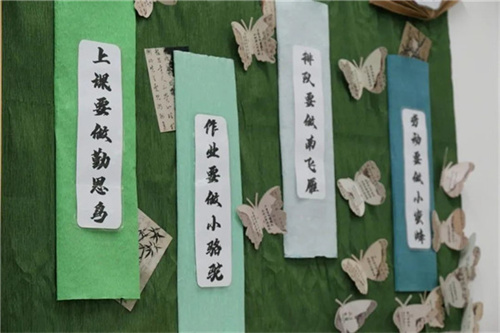 上课要做勤思鸟
作业要做小骆驼
排队要做南飞雁
劳动要做小蜜蜂